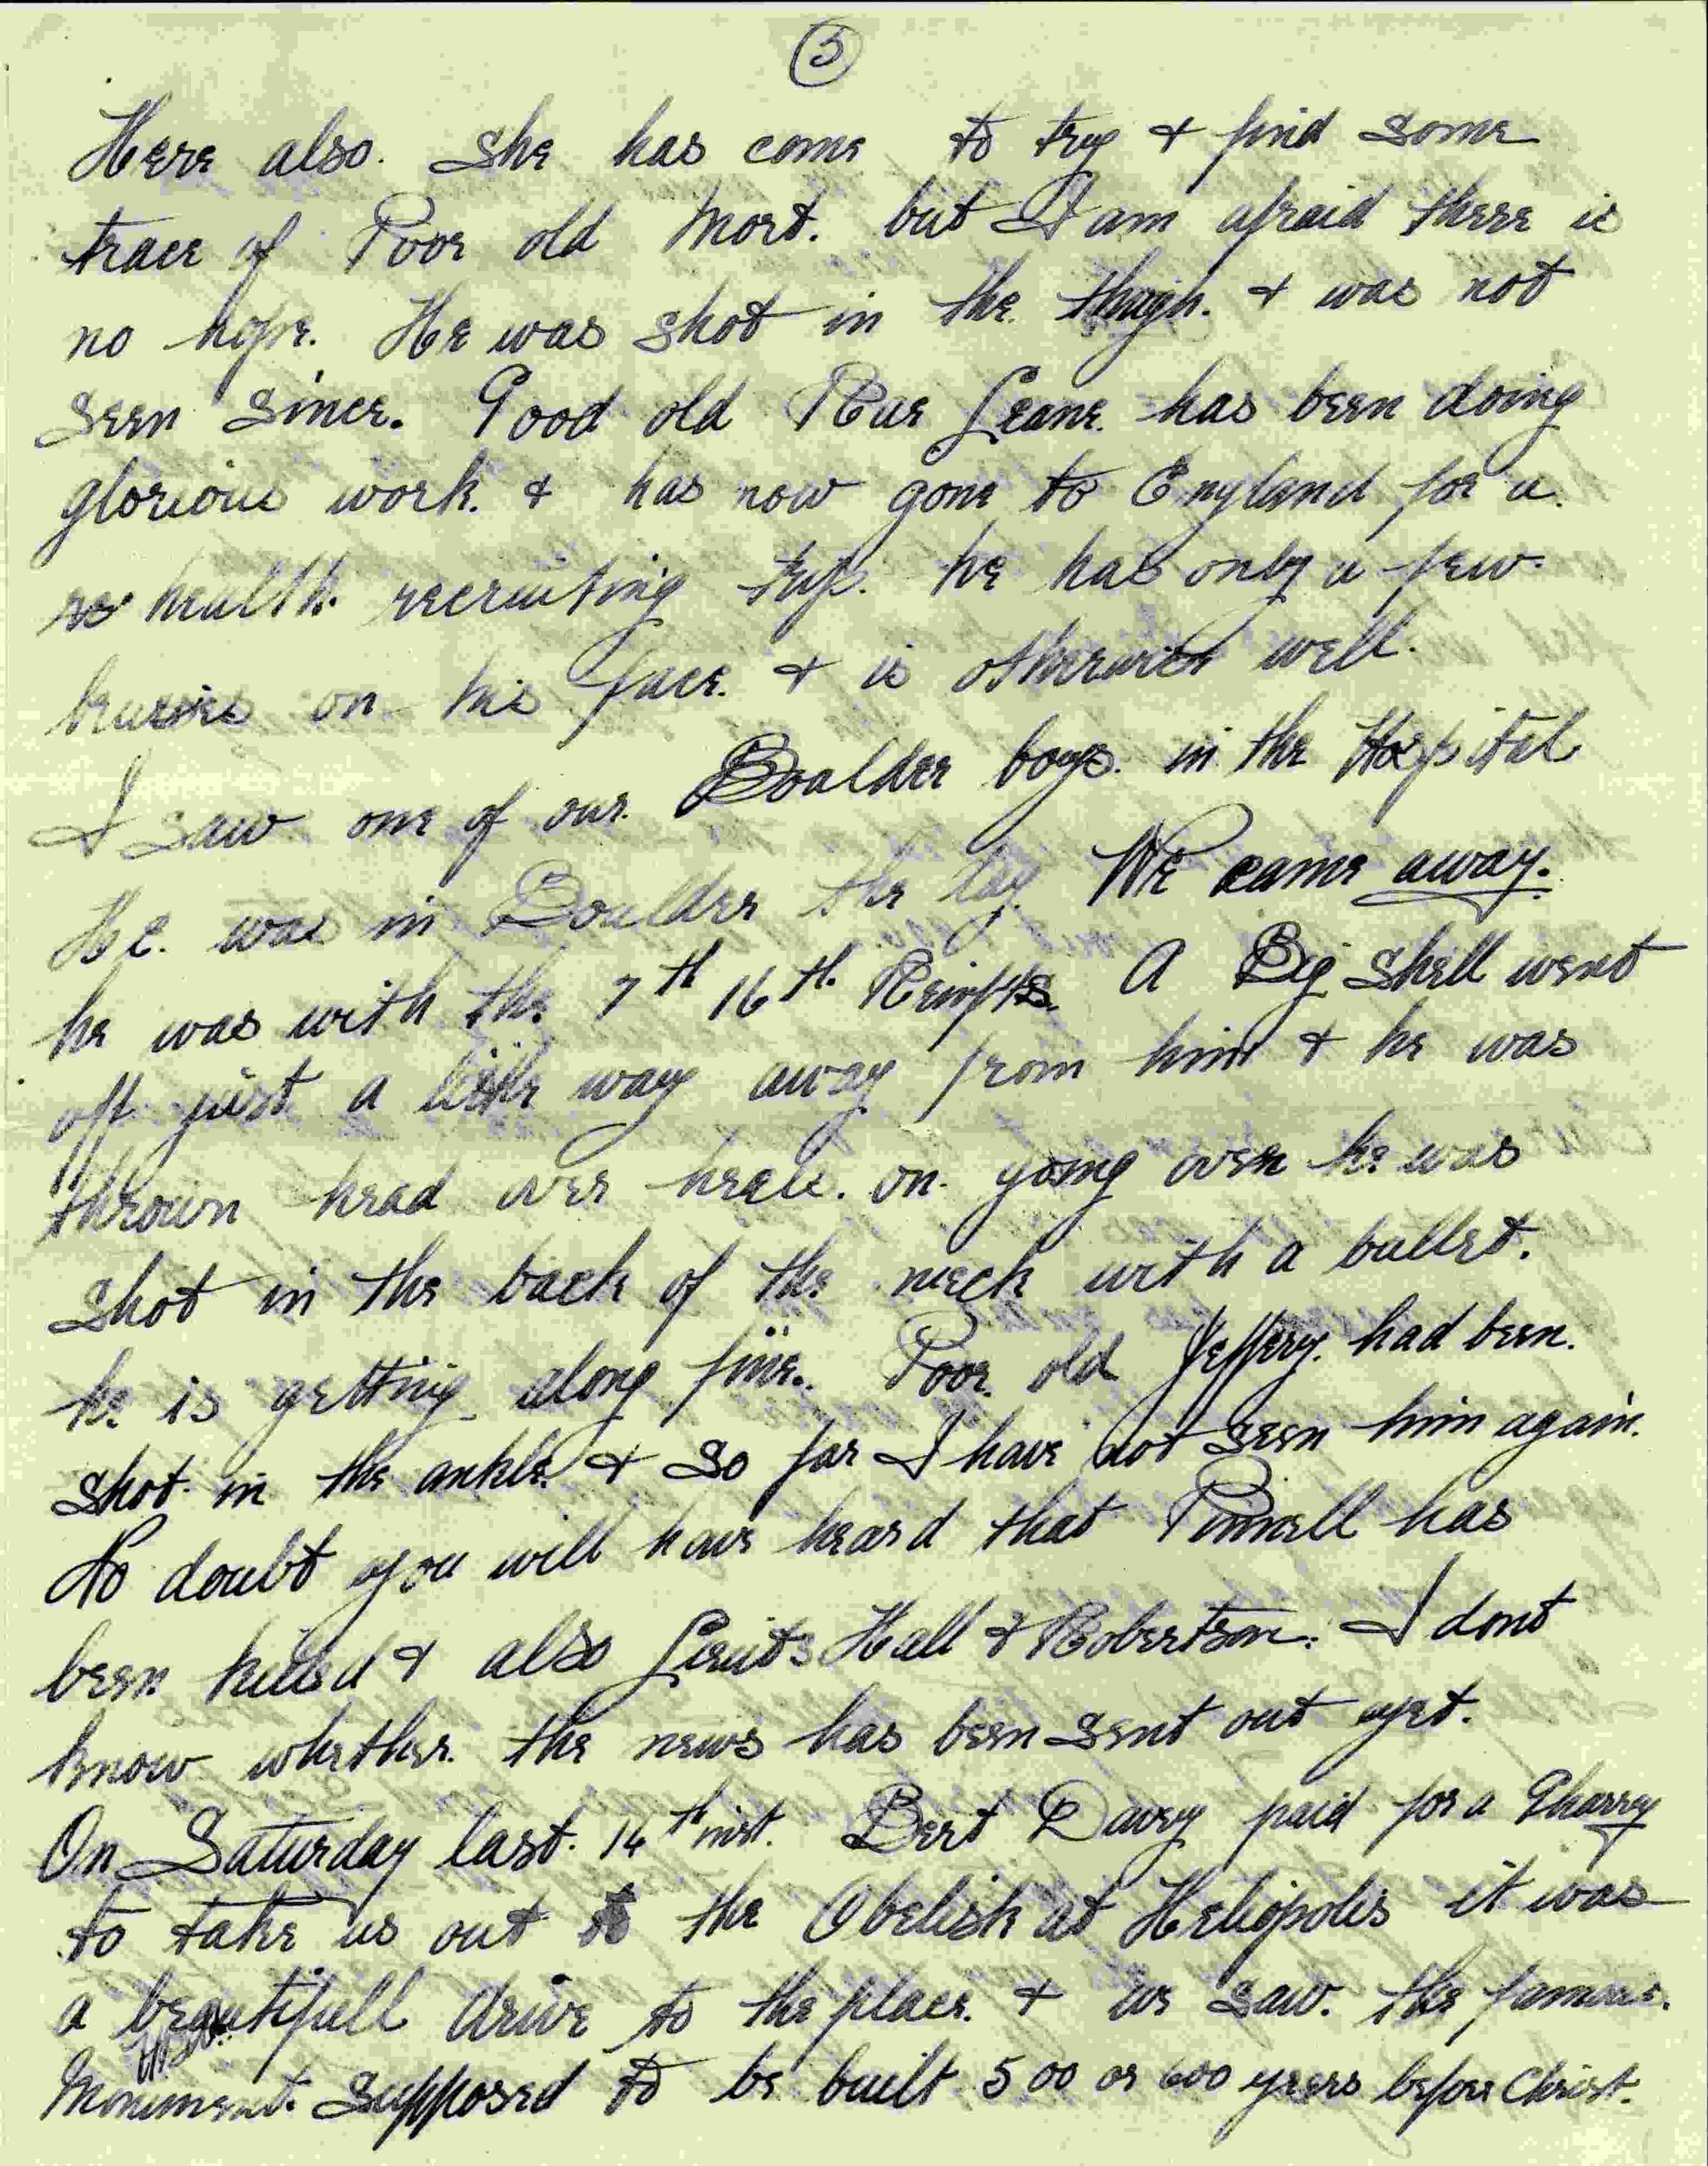 5
Here also. She has come to try & find some
trace of Poor old Mort. but I am afraid there is
no hope. He was shot in the thigh. & was not
seen since. Good old Rue Leane. has been doing
glorious work. & has now gone to England for a
health. recruiting trip. he has only a few
bruises on his face. & is otherwise well.
I saw one of our. Boulder boys. in the Hospital
He. was in Boulder the day We came away.
he was with the 7th 16th Reinfts. A Big shell went
off just a little way away from him & he was
thrown head over heals. on going over he was
shot in the back of the neck with a bullet.
he is getting along fine. Poor old Jeffery. had been.
shot in the ankle. & so far I have not seen him again.
No doubt you will have heard that Pinnell has
been killed & also Lieuts Hall & Robertson. I dont
know whether. the news has been sent out yet.
On Saturday last. 14th inst. Bert Davey paid for a Gharry
to take us out to the Obelisk at Heliopolis it was
a beautifull drive to the place. & we saw. the famous.
Monument. Supposed to be built 500 or 600 years before Christ.